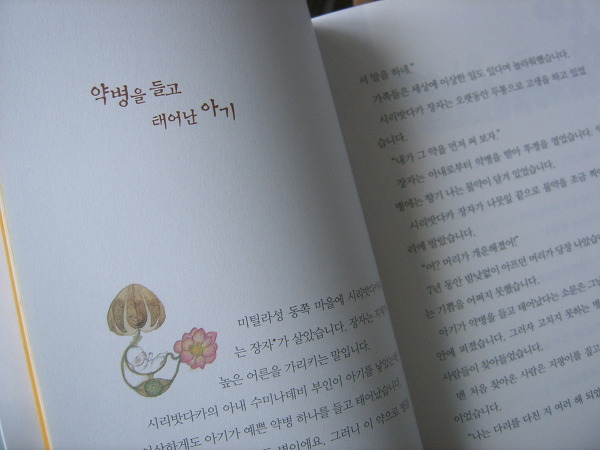 약병을 들고
태어난 아기
미틸라성 동쪽 마을에 시리밧다카
는 장자*가 살았습니다. 장자는
높은 어른을 가리키는 말입니다.
시리밧다카의 아내 수미나데비 부인이 아기를 낳았는데
이상하게도 아기가 예쁜 약병 하나를 들고 태어났습니다.
병이에요. 그러니 이 약으로
서 말을 하네."
가족들은 세상에 이상한 일도 있다며 놀라워했습니다.
시리밧다카 장자는 오랫동안 두통으로 고생을 하고 있었
습니다.
"내가 그 약을 먼저 써 보자."
장자는 아내로부터 약병을 받아 뚜껑을 열었습니다.
병에는 향기 나는 물약이 담겨 있었습니다.
시리밧다카 장자가 나뭇잎 끝으로 물약을 조금 찍어
리에 발랐습니다.
"어? 머리가 개운해졌어!"
7년 동안 밤낮없이 아프던 머리가 당장 나았습니다.
는 기쁨을 어쩌지 못했습니다.
아기가 약병을 들고 태어났다는 소문은
안에 퍼졌습니다. 그러자 고치지 못하는 병
사람들이 찾아들었습니다.
맨 처음 찾아온 사람은 지팡이를 짚고
이었습니다.
"나는 다리를 다친 지 여러 해 되었